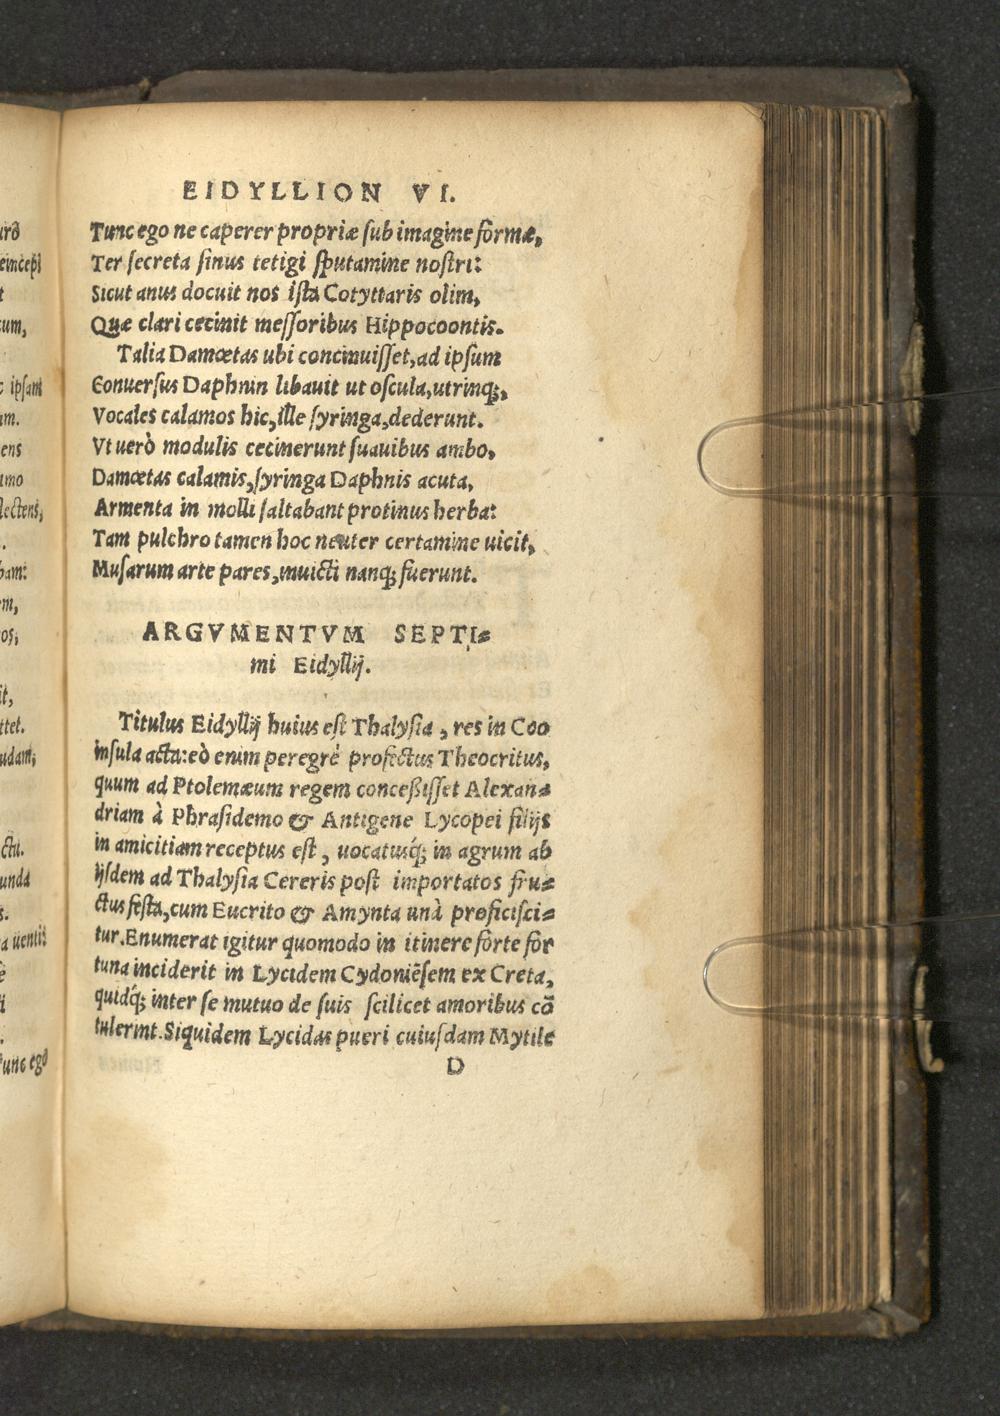 EIDYLLION VI.
Tunc ego ne caperer propriæ sub imagine formæ,
Ter secreta sinus tetigi sputamine nostri:
Sicut anus docuit nos ista Cotyttaris olim,
Quæ clari cecinit messoribus Hippocoontis.
Talia Damœtas ubi concinuisset, ad ipsum
Conuersus Daphnin libauit ut oscula, utrinq;,
Vocales calamos hic, ille syringa, dederunt.
Vt uerò modulis cecinerunt suauibus ambo,
Damœtas calamis, syringa Daphnis acuta,
Armenta in molli saltabant protinus herba:
Tam pulchro tamen hoc neuter certamine uicit,
Musarum arte pares, inuicti nanq; fuerunt.
ARGVMENTVM SEPTI=
mi Eidyllij.
Titulus Eidyllij huius est Thalysia, res in Coo
insula acta: eò enim peregrè profectus Theocritus,
quum ad Ptolemæum regem concessisset Alexan=
driam à Phrasidemo & Antigene Lycopei filijs
in amicitiam receptus est, uocatusq́; in agrum ab
ijsdem ad Thalysia Cereris post importatos fru=
ctus festa, cum Eucrito & Amynta unà proficisci=
tur. Enumerat igitur quomodo in itinere forte for
tuna inciderit in Lycidem Cydoniẽsem ex Creta,
quidq́; inter se mutuo de suis scilicet amoribus cõ
tulerint. Siquidem Lycidas pueri cuiusdam Mytile
D